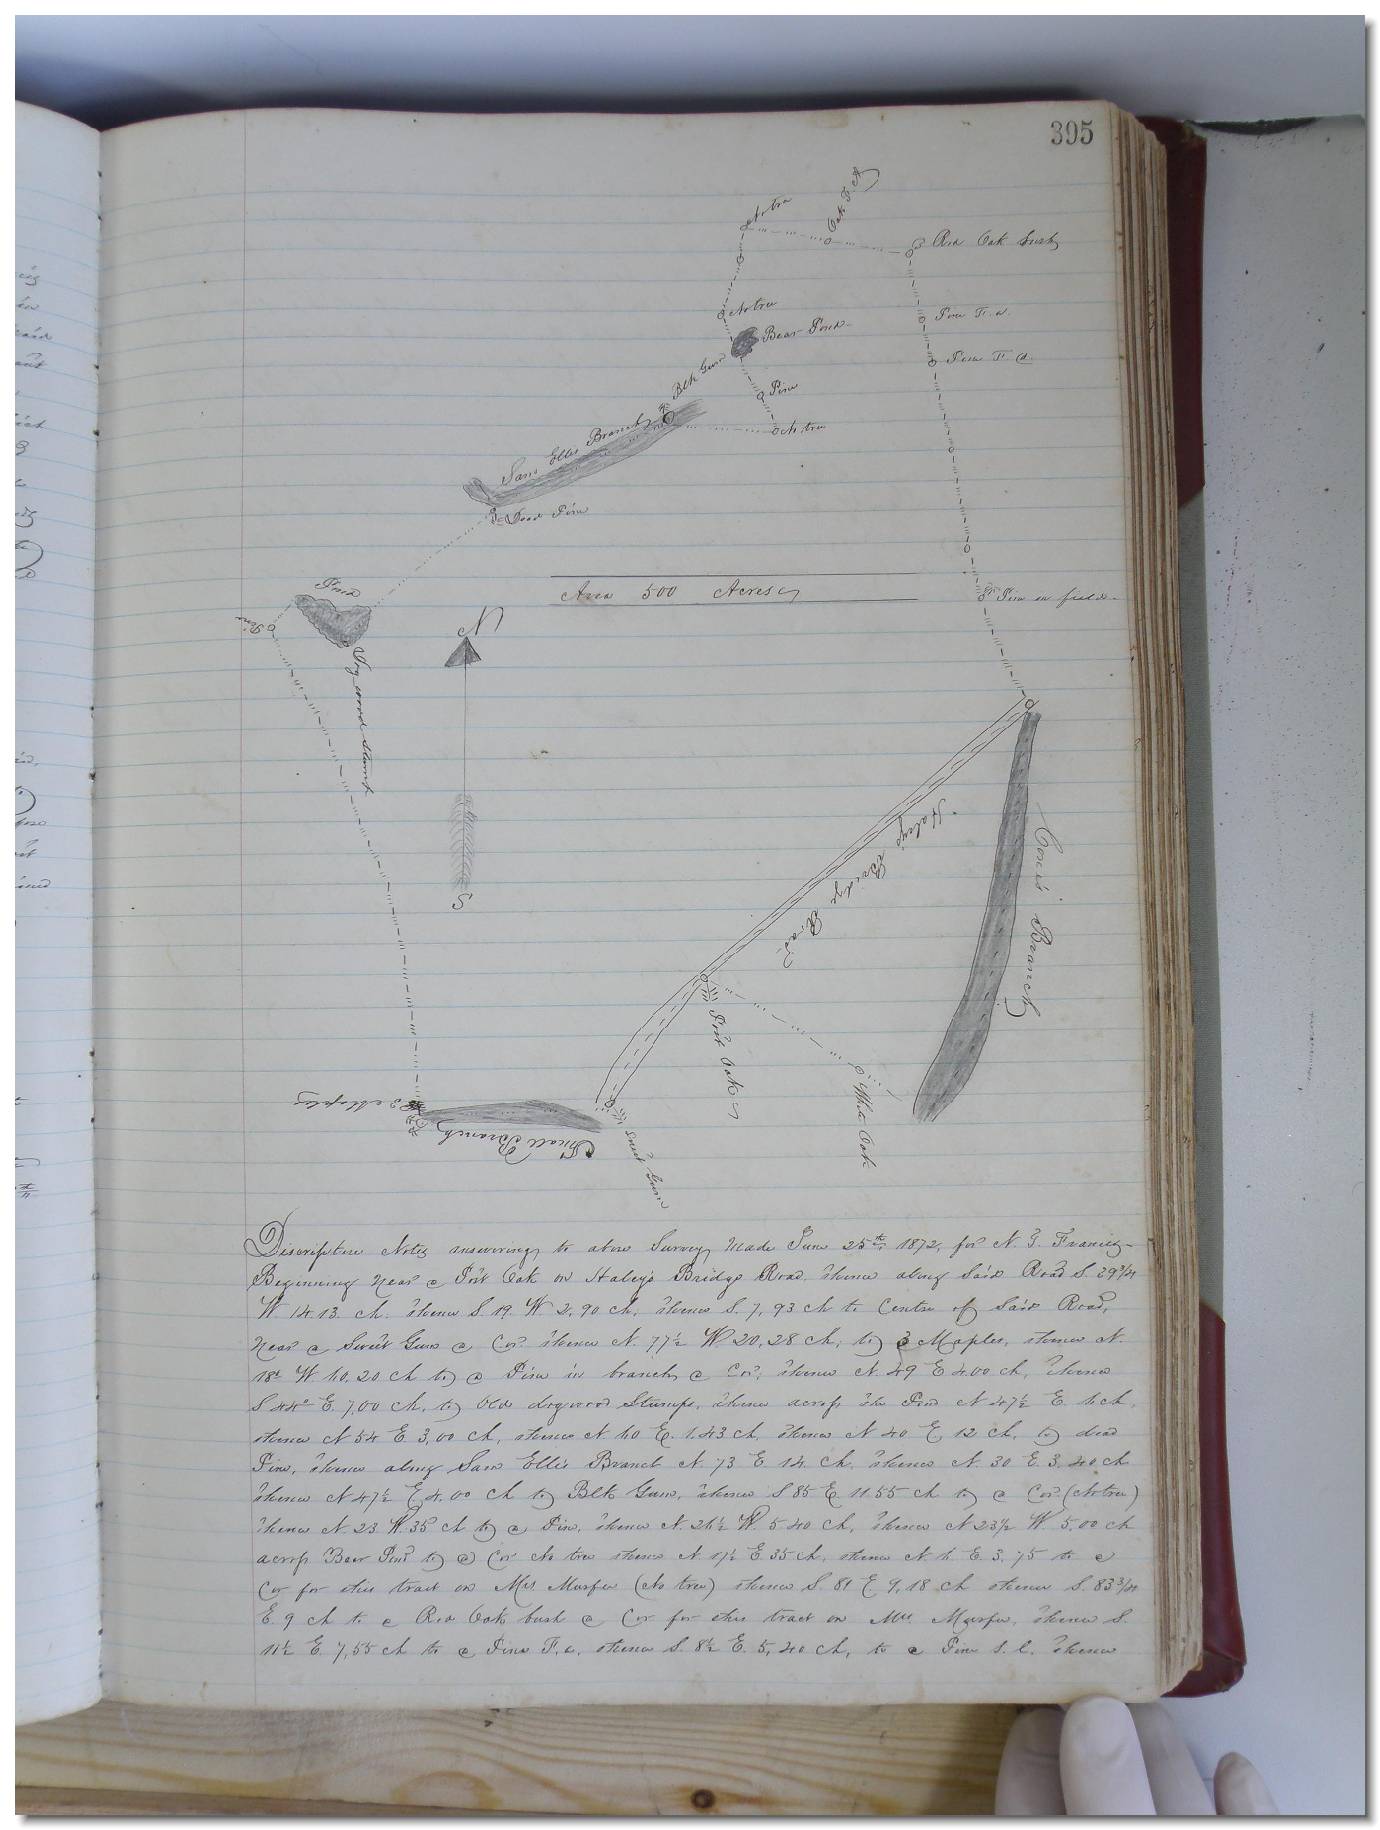 395
No tree
Oak F. A.
Red Oak bush
No tree
Bear Pond
Pine F. a.
Pine F. a.
Blk Gum
Pine
No tree
Sam Ellis Branch
Dead Pine
Area 500 Acres
Pine in field
Pond
Pine
N
Dog wood stump
S
Haley's Bridge Road
Branch
Post Oak
White Oak
3 Maples
Small Branch
Sweet Gum
Discriptive Notes answering to above Survey made June 25th 1872, for N. T. Francis
Beginning near a Post Oak on Haley's Bridge Road. thence along Said Road S. 29 3/4
W. 14.13. ch. thence S. 19. W. 2,90 ch, thence S. 7, 93 ch to Centre of Said Road,
near a Sweet Gum a Cor. thence N. 77½ W. 20,28 ch, to 3 Maples, thence N.
W. 40.20 ch to a Pine in branch a Cor; thence N. 49 E 4.00 ch, thence
S 44° E. 7,00 ch, to Old dogwood Stump, thence across the Pond N 47½ E. ch,
thence N 54 E 3,00 ch, thence N. E. 1.43 ch, thence N 40 E 12 ch, to dead
Pine, thence along Sam Ellis Branch N. 73 E 14 ch. thence N. 30 E. 3,40 ch
thence N 47½ E 4.00 ch to Blk Gum, thence S 85 E 11.55 ch to a Cor. (No tree)
thence N. 23 W. 35 ch to a Pine, thence N. 26½ W. 5 40 ch, thence N 23½ W. 5.00 ch
across Bear Pond to a Cor No tree thence N E 35 ch, thence N. E. 3,75 to a
Cor for this tract on Mrs (No tree) thence S. 81 E 9,18 ch thence S. 83 3/4
E. 9 ch to a Red Oak bush a Cor for this tract on Mrs. thence S.
11½ E 7,55 ch to a Pine F. a, thence S. 8½ E. 5,40 ch, to a Pine thence